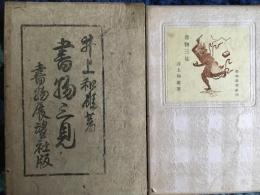 井上和雄著
書物三見
書物展望社版
書物三見
井上和雄著